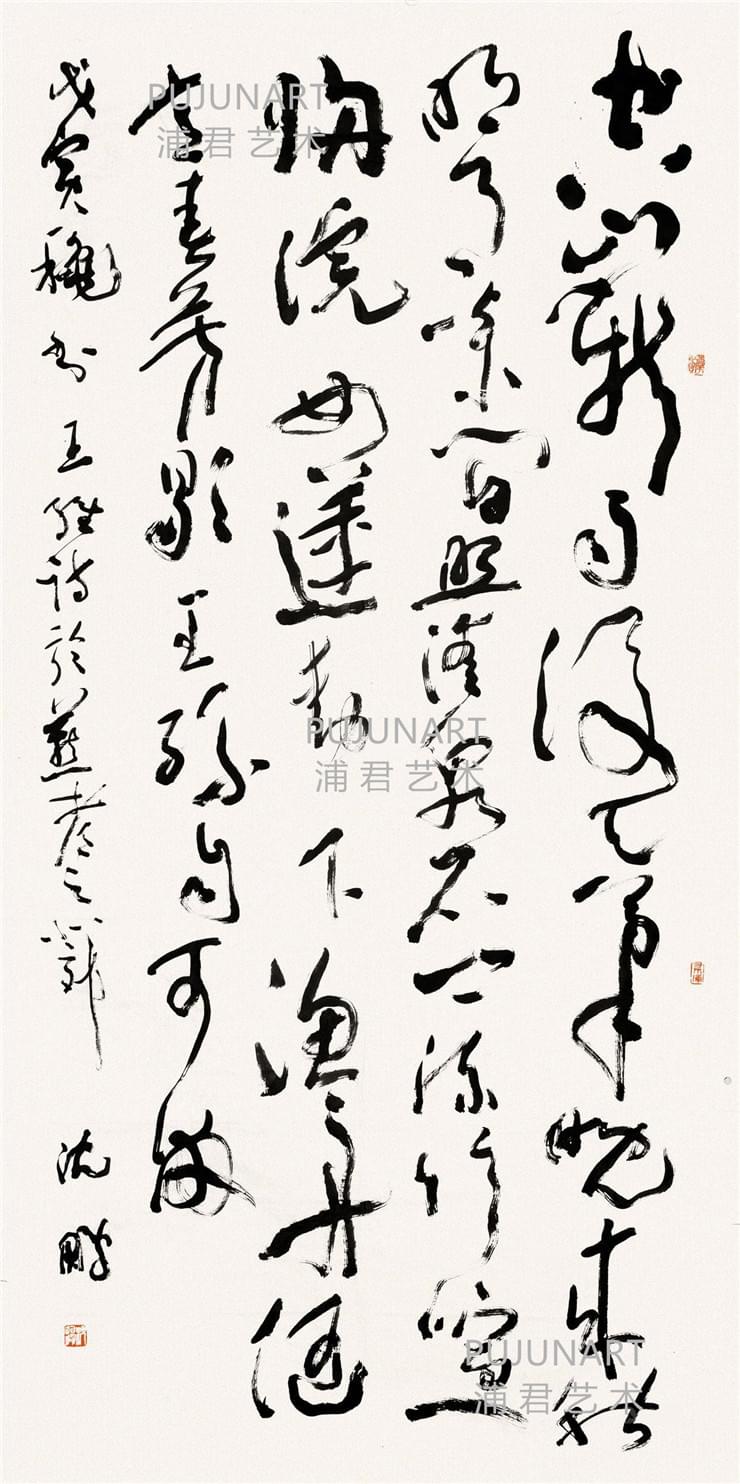 空山新雨後天氣晚來秋
明月松間照清泉石上流竹喧
歸浣女蓮動下漁舟隨
意春芳歇王孫自可留
戊寅穐書王維詩於燕都之
沈鵬
PUJUNART
浦君艺术
PUJUNART
浦君艺术
PUJUNART
浦君艺术